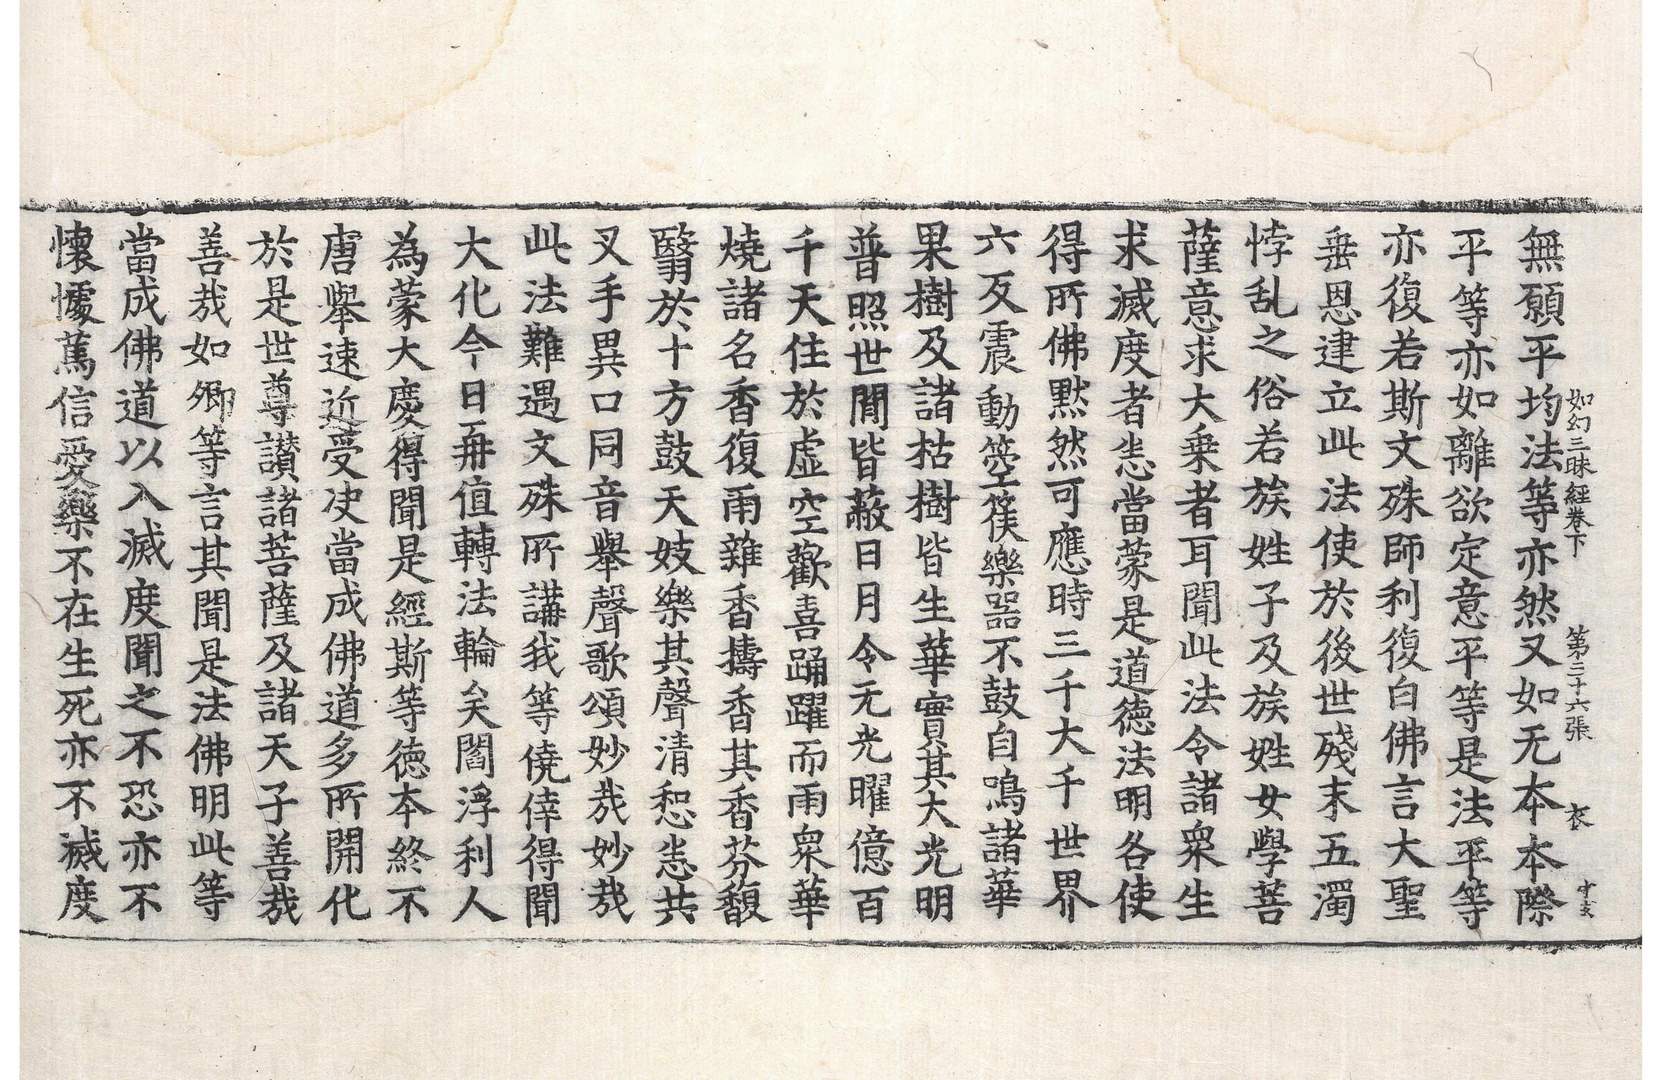 如幻三昧經卷下 第三十六張 衣
無願平均法等亦然又如无本本際
平等亦如離欲定意平等是法平等
亦復若斯文殊師利復白佛言大聖
垂恩建立此法使於後世殘末五濁
悖乱之俗若族姓子及族姓女學菩
薩意求大乘者耳聞此法令諸衆生
求滅度者恙當蒙是道德法明各使
得所佛黙然可應時三千大千世界
六反震動箜篌樂器不鼓自鳴諸華
果樹及諸枯樹皆生華實其大光明
普照世間皆蔽日月令无光曜億百
千天住於虛空歡喜踊躍而雨衆華
燒諸名香復雨雜香擣香其香芬馥
翳於十方鼓天妓樂其聲清和悉共
叉手異口同音舉聲歌頌妙哉妙哉
此法難遇文殊所講我等僥倖得聞
大化今日再值轉法輪矣閻浮利人
為蒙大慶得聞是經斯等德本終不
唐舉速近受决當成佛道多所開化
於是世尊讃諸菩薩及諸天子善哉
善哉如卿等言其聞是法佛明此等
當成佛道以入滅度聞之不恐亦不
懷懅篤信愛樂不在生死亦不滅度